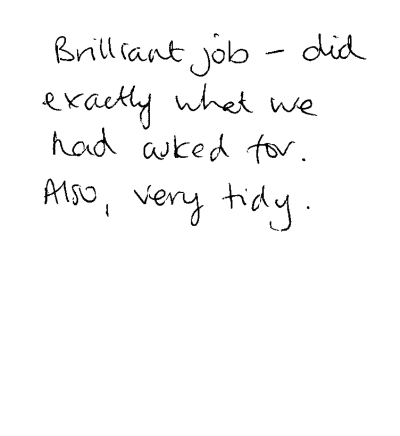 Brilliant job - did
exactly what we
had asked for.
Also, very tidy.